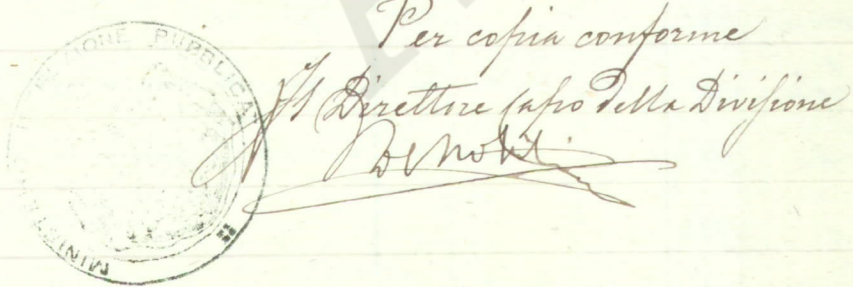 Per copia conforme
Il Direttore Capo della Divisione
MINIS IONE PUBBLICA